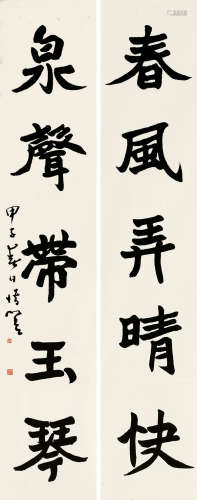 春風弄晴快
泉聲帶玉琴
甲子春日